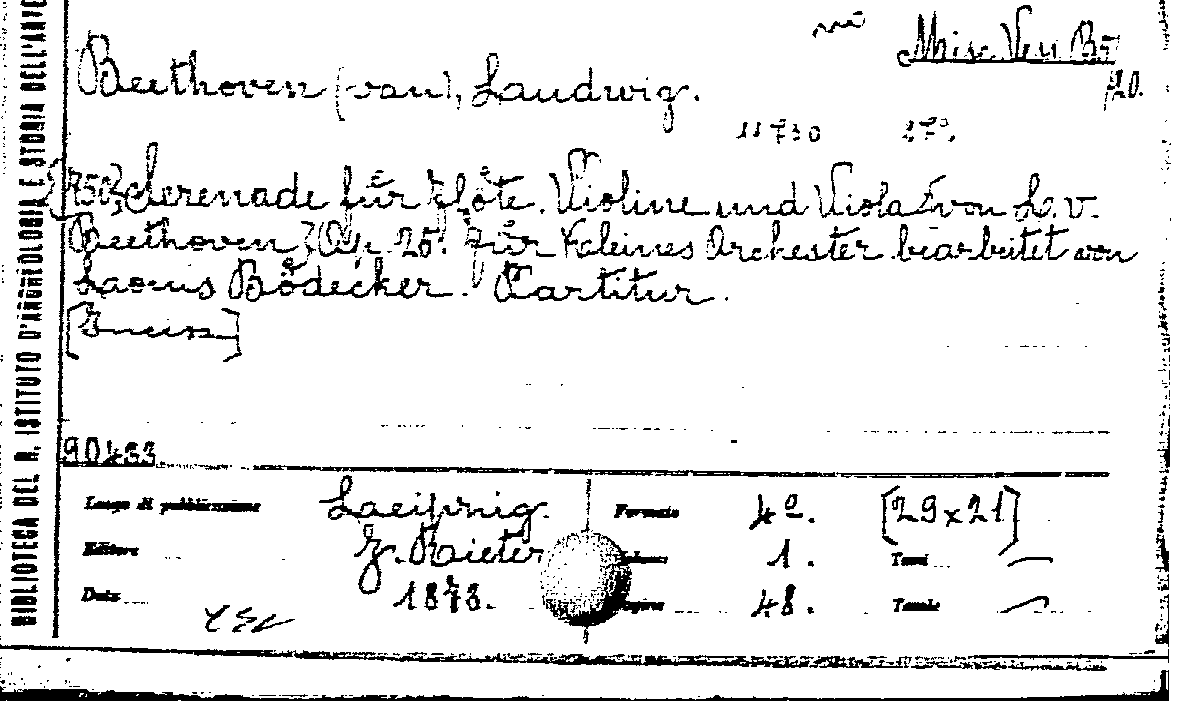 Misc. Ven B5
/20.
Beethoven (van), Laudwig.
11730 27ª.
Serenade für Flöte. Violine und Viola von L. v.
Beethoven Op. 25. für kleines Orchester bearbeitet von
Laouis Bödecker. Partitur.
90433
Luogo di pubblicazione Laeipnig. Formato 4º. [29x21]
Editore J. Raieter Volume 1. Tomi —
Data 1873. Pagine 48. Tavole —
BIBLIOTECA DEL R. ISTITUTO D'ARCHEOLOGIA E STORIA DELL'ARTE